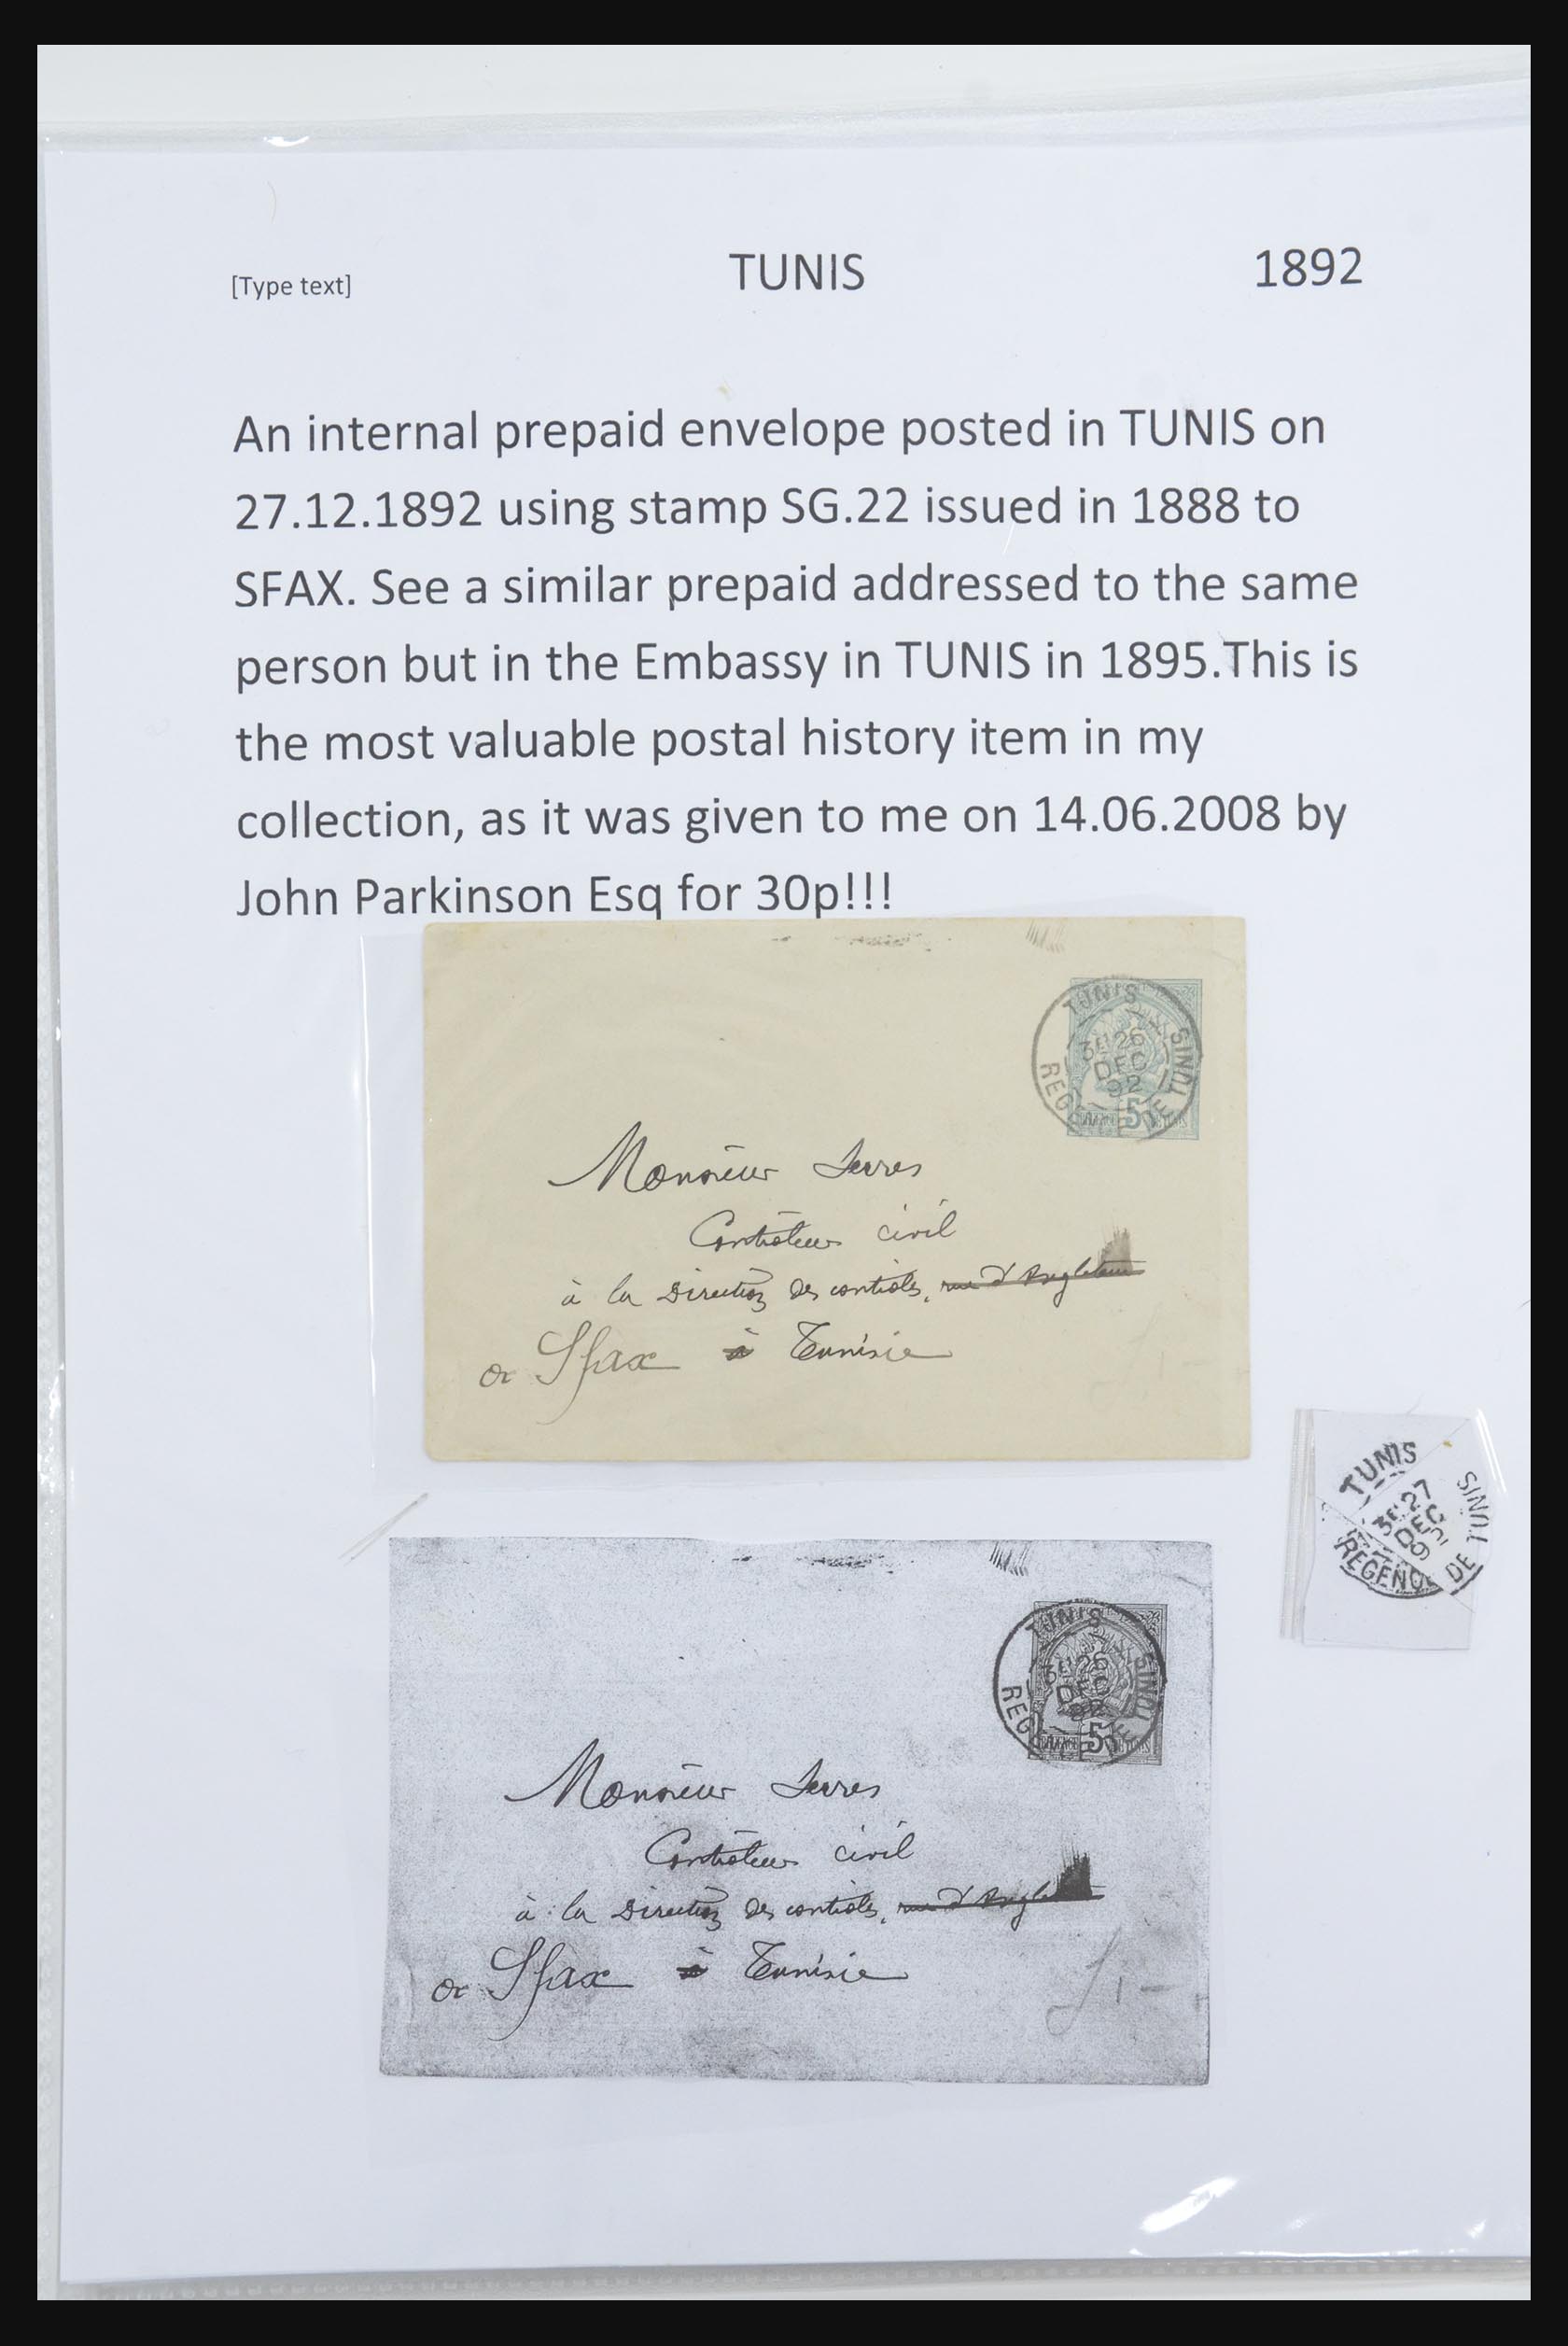 [Type text] TUNIS 1892
An internal prepaid envelope posted in TUNIS on
27.12.1892 using stamp SG.22 issued in 1888 to
SFAX. See a similar prepaid addressed to the same
person but in the Embassy in TUNIS in 1895.This is
the most valuable postal history item in my
collection, as it was given to me on 14.06.2008 by
John Parkinson Esq for 30p!!!
TUNIS
3E 26
DEC
92
REGENCE DE TUNIS
5
Monsieur Serres
Contrôleur civil
à la Direction des contrôles, rue d'Angleterre
Sfax à Tunisie
TUNIS
3E 27
DEC
92
REGENCE DE TUNIS
TUNIS
3E 26
DEC
92
REGENCE DE TUNIS
5
Monsieur Serres
Contrôleur civil
à la Direction des contrôles, rue d'Angleterre
Sfax à Tunisie